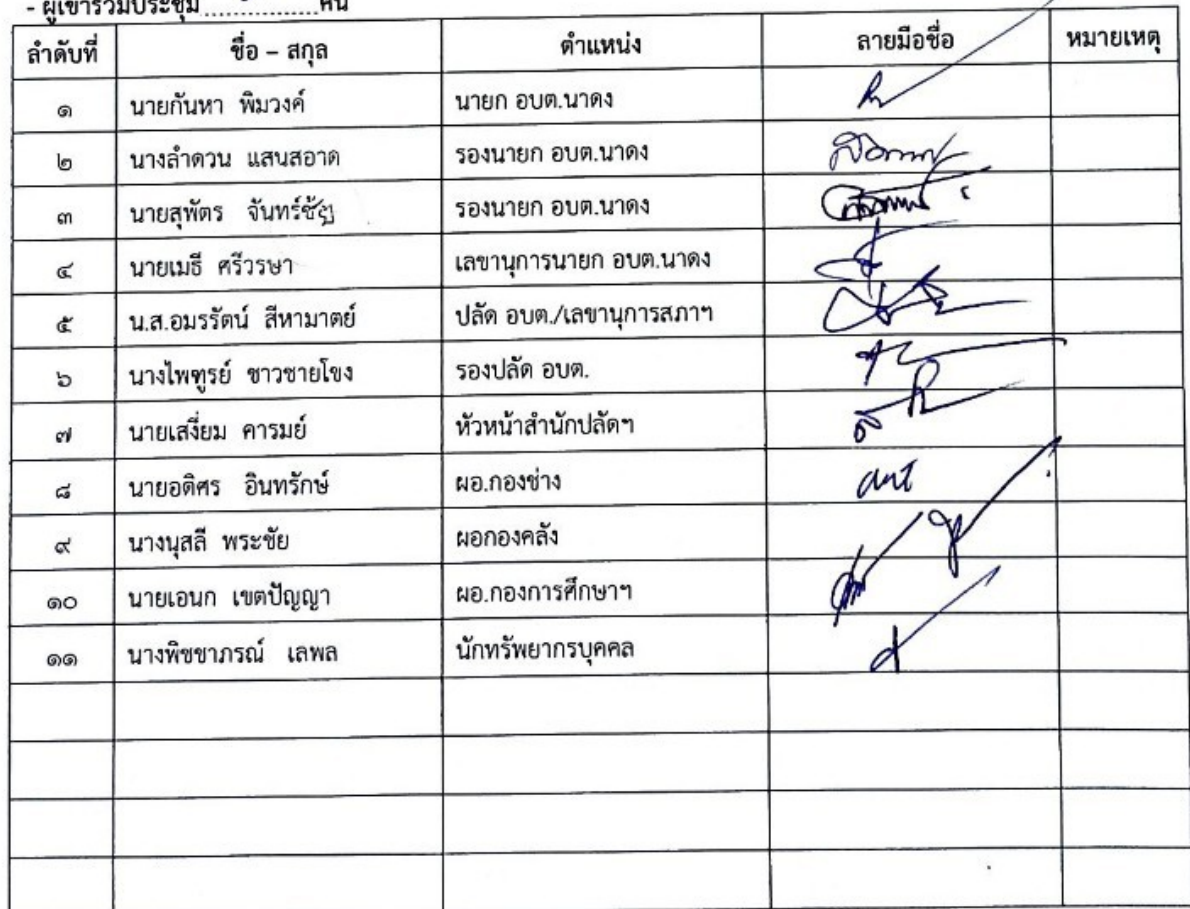 - ผู้เข้าร่วมประชุม ................คน
ลำดับที่ ชื่อ – สกุล ตำแหน่ง ลายมือชื่อ หมายเหตุ
๑ นายกันหา พิมวงค์ นายก อบต.นาดง
๒ นางลำดวน แสนสอาด รองนายก อบต.นาดง
๓ นายสุพัตร รองนายก อบต.นาดง
๔ นายเมธี ศรีวรษา เลขานุการนายก อบต.นาดง
๕ น.ส.อมรรัตน์ สีหามาตย์ ปลัด อบต./เลขานุการสภาฯ
๖ นางไพฑูรย์ ชาวชายโขง รองปลัด อบต.
๗ นายเสงี่ยม คารมย์ หัวหน้าสำนักปลัดฯ
๘ นายอดิศร อินทรักษ์ ผอ.กองช่าง
๙ นางนุสลี พระชัย ผอกองคลัง
๑๐ นายเอนก เขตปัญญา ผอ.กองการศึกษาฯ
๑๑ นางพิชชาภรณ์ เลพล นักทรัพยากรบุคคล